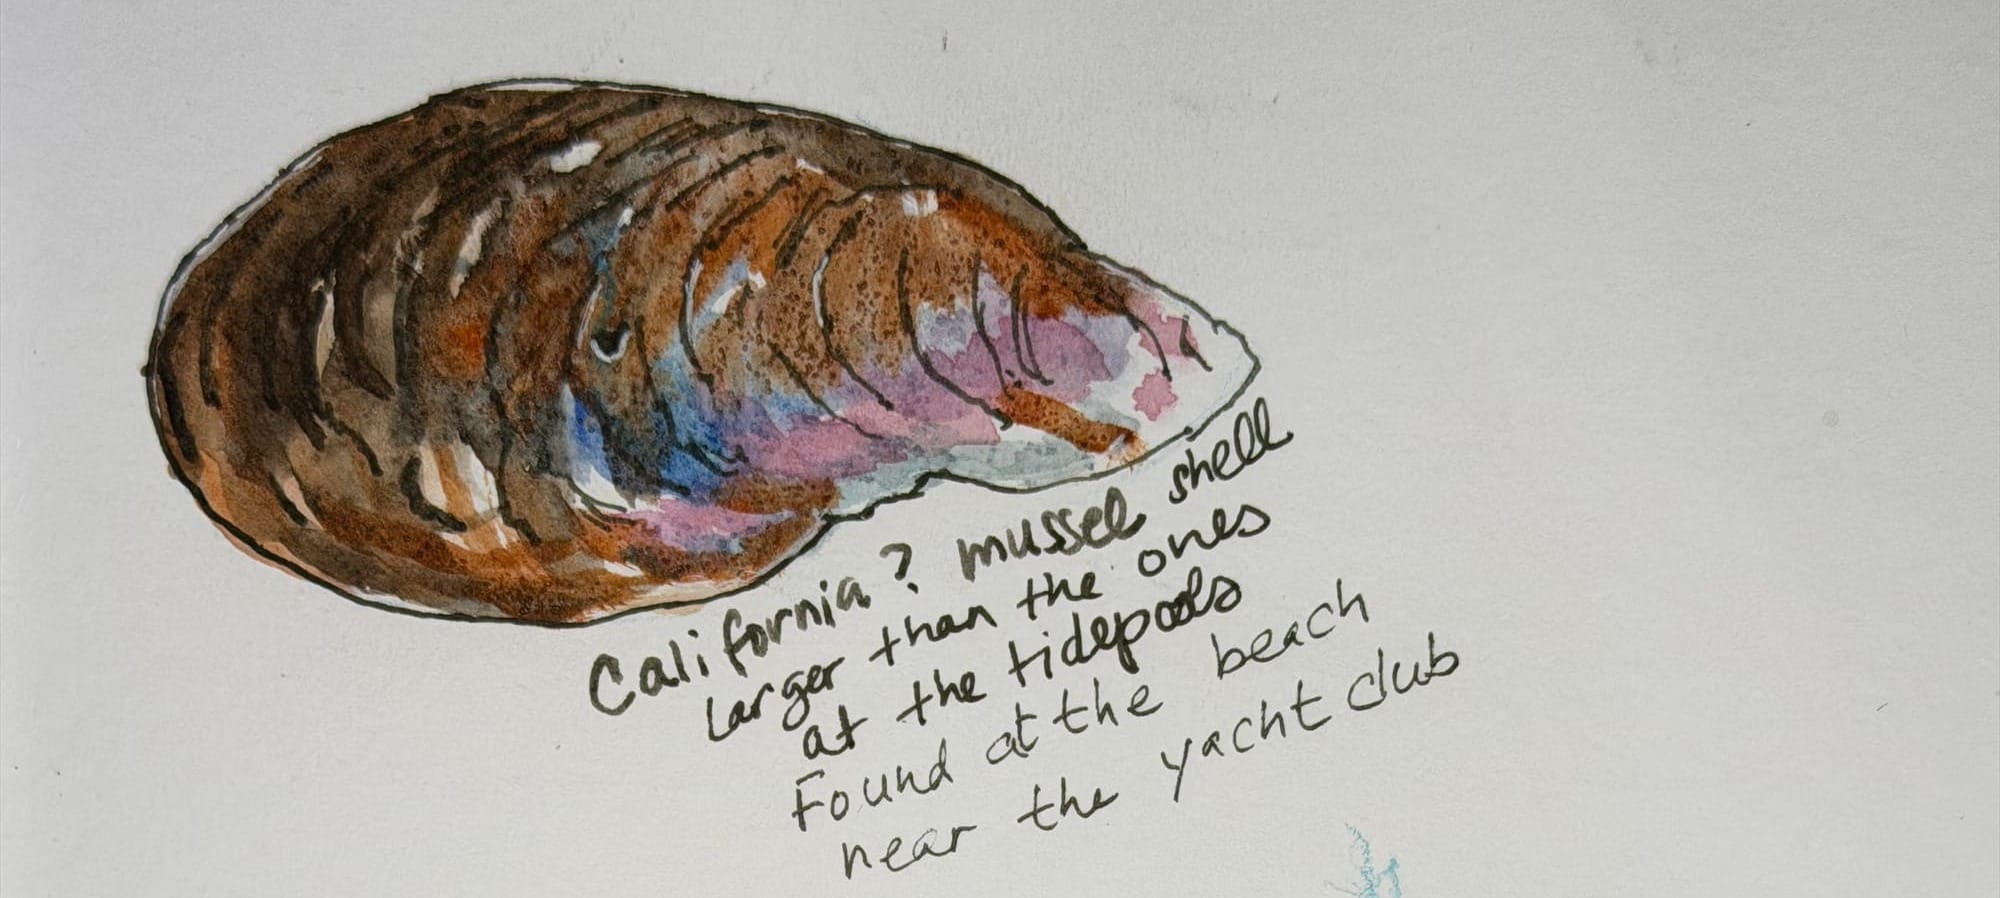 California? mussel shell
larger than the ones
at the tidepools
Found at the beach
near the yacht club